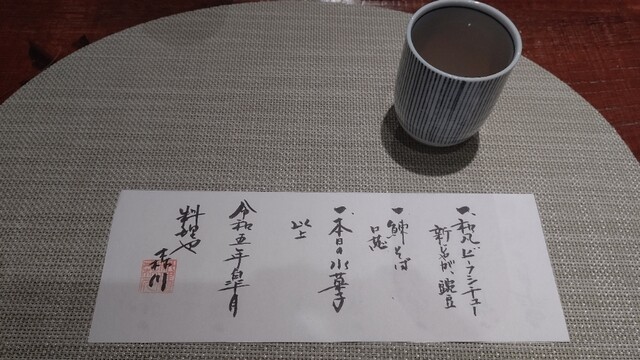 一、和風ビーフシチュー
新じゃが、豌豆
一、鰊そば
一、本日の水菓子
以上
令和五年皐月
料理や